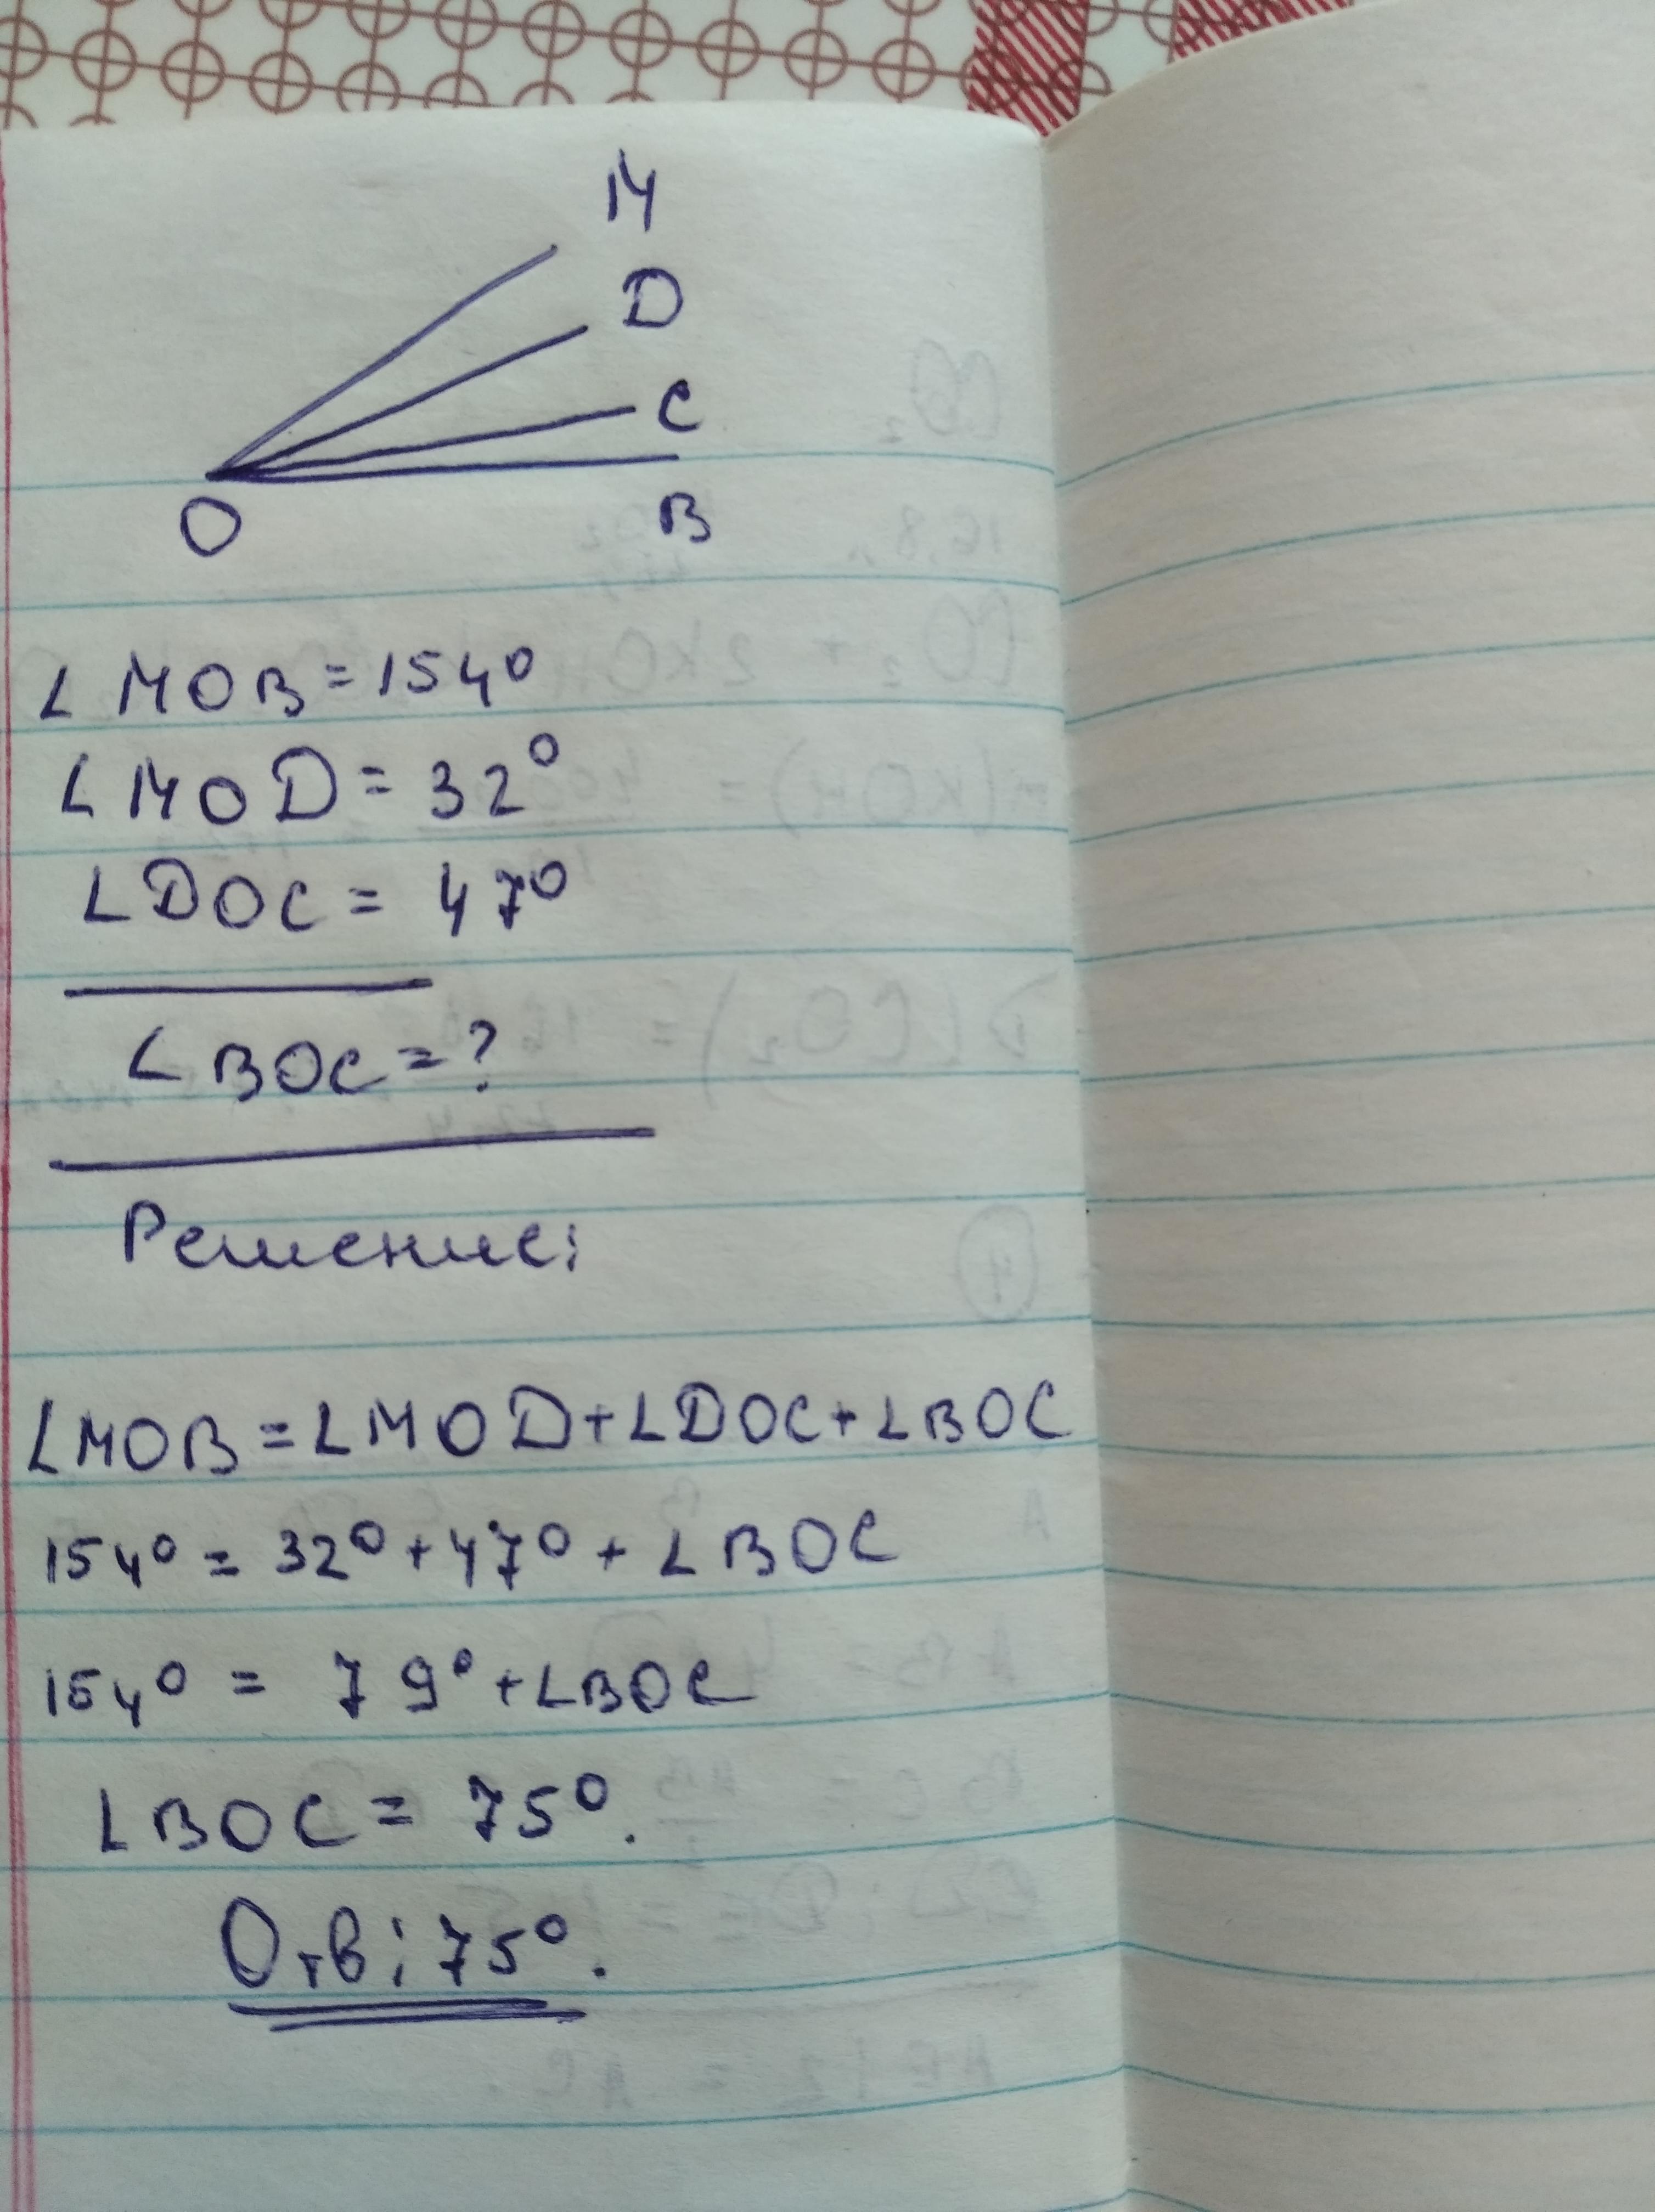 M
D
C
O
B
∠ MOB = 154°
∠ MOD = 32°
∠DOC = 47°
∠ BOC = ?
Решение:
∠MOB = ∠MOD + ∠DOC + ∠BOC
154° = 32° + 47° + ∠ BOC
154° = 79° + ∠BOC
∠BOC = 75°.
Отв: 75°.